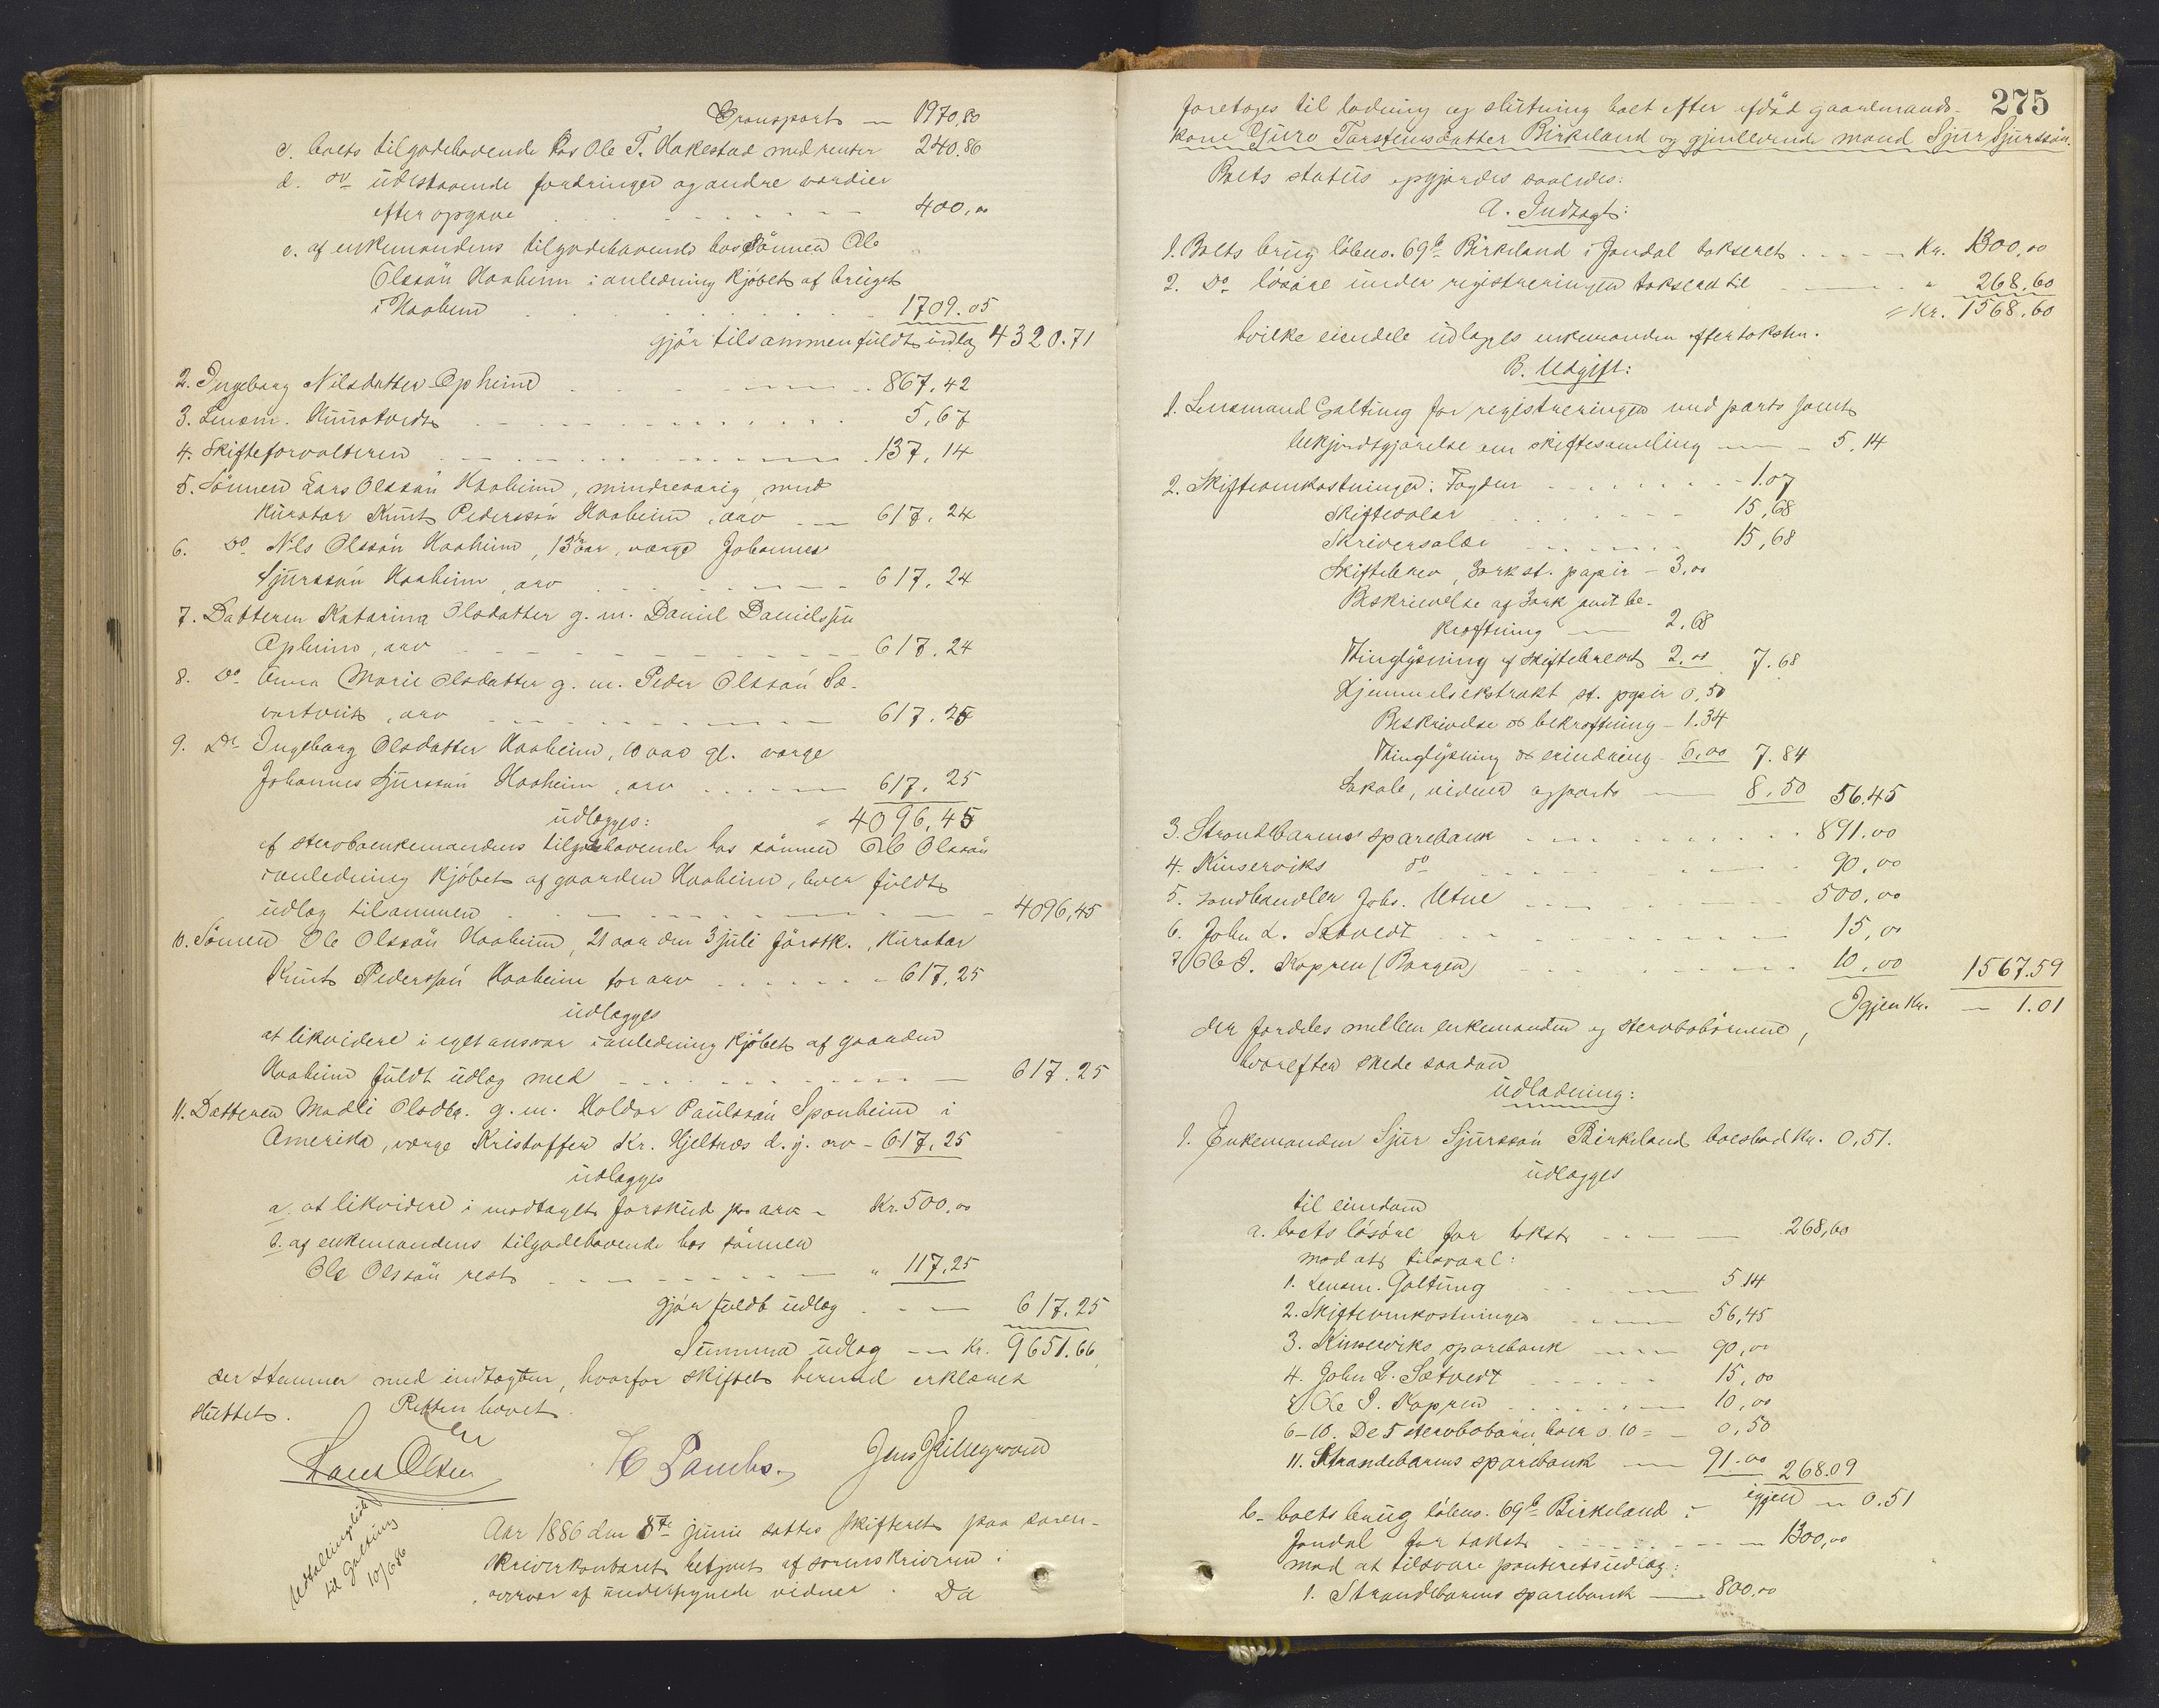 Transport — 1970,80
c. boets tilgodehavende hos Ole T. Hakestad med renter 240.86
d. do udestaaende fordringer og andre værdier
efter opgave 400,00
e. af enkemandens tilgodehavende hos sønnen Ole
Olssøn Haaheim i anledning kjøbet af bruget
i Haaheim 1709.05
gjør tilsammen fuldt udlæg 4320.71
2. Ingeborg Nilsdatter Opheim 867,42
3. Lensm. 5,67
4. Skifteforvalteren 137,14
5. Sønnen Lars Olssøn Haaheim, mindreaarig, med
kurator Knut Pederssøn Haaheim, arv 617,24
6. do Nils Olssøn Haaheim, 13 aar, værge Johannes
Sjurssøn Haaheim, arv 617,24
7. Datteren Katarina Olsdatter g. m. Daniel Danielssøn
Opheim, arv 617,24
8. do Anna Marie Olsdatter g. m. Peder Olssøn Sæ-
vartveit, arv 617,25
9. do Ingeborg Olsdatter Haaheim, 10 aar gl. værge
Johannes Sjurssøn Haaheim, arv 617,25
udlægges: 4096,45
af stervboenkemandens tilgodehavende hos sønnen Ole Olssøn
i anledning kjøbet af gaarden Haaheim, hver fuldt
udlæg tilsammen 4096,45
10. Sønnen Ole Olssøn Haaheim, 21 aar den 3 juli førstk., kurator
Knut Pederssøn Haaheim for arv 617,25
udlægges
at likvidere i eget ansvar i anledning kjøbet af gaarden
Haaheim fuldt udlæg med 617.25
11. Datteren Madli Olsdtr. g. m. Haldor Paulssøn Sponheim i
Amerika, værge Kristoffer Kr. Hjeltnæs d. y. arv - 617,25
udlægges
a. at likvidere i modtaget forskud paa arv - Kr. 500,00
b. af enkemandens tilgodehavende hos sønnen
Ole Olssøn rest " 117,25
gjør fuldt udlæg 617.25
Summa udlæg — Kr. 9651.66
der stemmer med indtægten, hvorfor skiftet herved erklæres
sluttet. Retten hævet.
Lars Olsen
Jens Lillegraven
Udtallingsliste
til Galtung
10/6 86
Aar 1886 den 8de juni sattes skifteret paa soren-
skriverkontoret betjent af sorenskriveren i
nærvær af undertegnede vidner. Da
275
foretoges til lodning og slutning boet efter afdød gaardmands-
kone Guro Torsteinsdatter Birkeland og gjenlevende mand Sjur Sjurssøn.
Boets status opgjordes saaledes:
A. Indtægt:
1. Boets brug løbeno. 69b Birkeland i Jondal takseret Kr. 1300,00
2. Do løsøre under registreringen takseret til " 268.60
= Kr. 1568.60
hvilke eiendele udlægges enkemanden efter taksten.
B. Udgift:
1. Lensmand Galtung for registreringen med porto samt
bekjendtgjørelse om skiftesamling — 5,14
2. Skifteomkostninger: Fogden 1.07
Skiftesalær 15,68
Skriversalær 15,68
Skiftebrev, 3 ark st. papir - 3,00
Beskrivelse af 3 ark samt be-
kræftning — 2.68
Thinglysning af skiftebrevet 2.00 7.68
Hjemmelsekstrakt st. papir 0,50
Beskrivelse & bekræftning - 1.34
Thinglysning & erindring - 6,00 7.84
Lokale, vidner og porto — 8.50 56.45
3. Strandebarms sparebank 891.00
4. Kinserviks do 90,00
5. Landhandler Johs. Utne 500,00
6. John L. Sætvedt 15,00
7. Ole J. Kopren (Borgen) 10,00 1567.59
Igjen Kr. — 1.01
der fordeles mellem enkemanden og stervbobørnene,
hvorefter skede saadan
udlodning:
1. Enkemanden Sjur Sjurssøn Birkeland boeslod Kr. 0,51.
udlægges
til eiendom
a. boets løsøre for takst 268,60
mod at tilsvare:
1. Lensm. Galtung 5.14
2. Skifteomkostninger 56,45
3. Kinserviks sparebank 90,00
4. John L. Sætvedt 15,00
5. Ole J. Kopren 10,00
6-10. De 5 stervbobørn, hver 0.10 = 0,50
11. Strandebarms sparebank — 91.00 268.09
igjen — 0.51
b. boets brug løbeno. 69b Birkeland i
Jondal for takst 1300,00
mod at tilsvare panteretsudlæg:
1. Strandebarms sparebank — 800,00